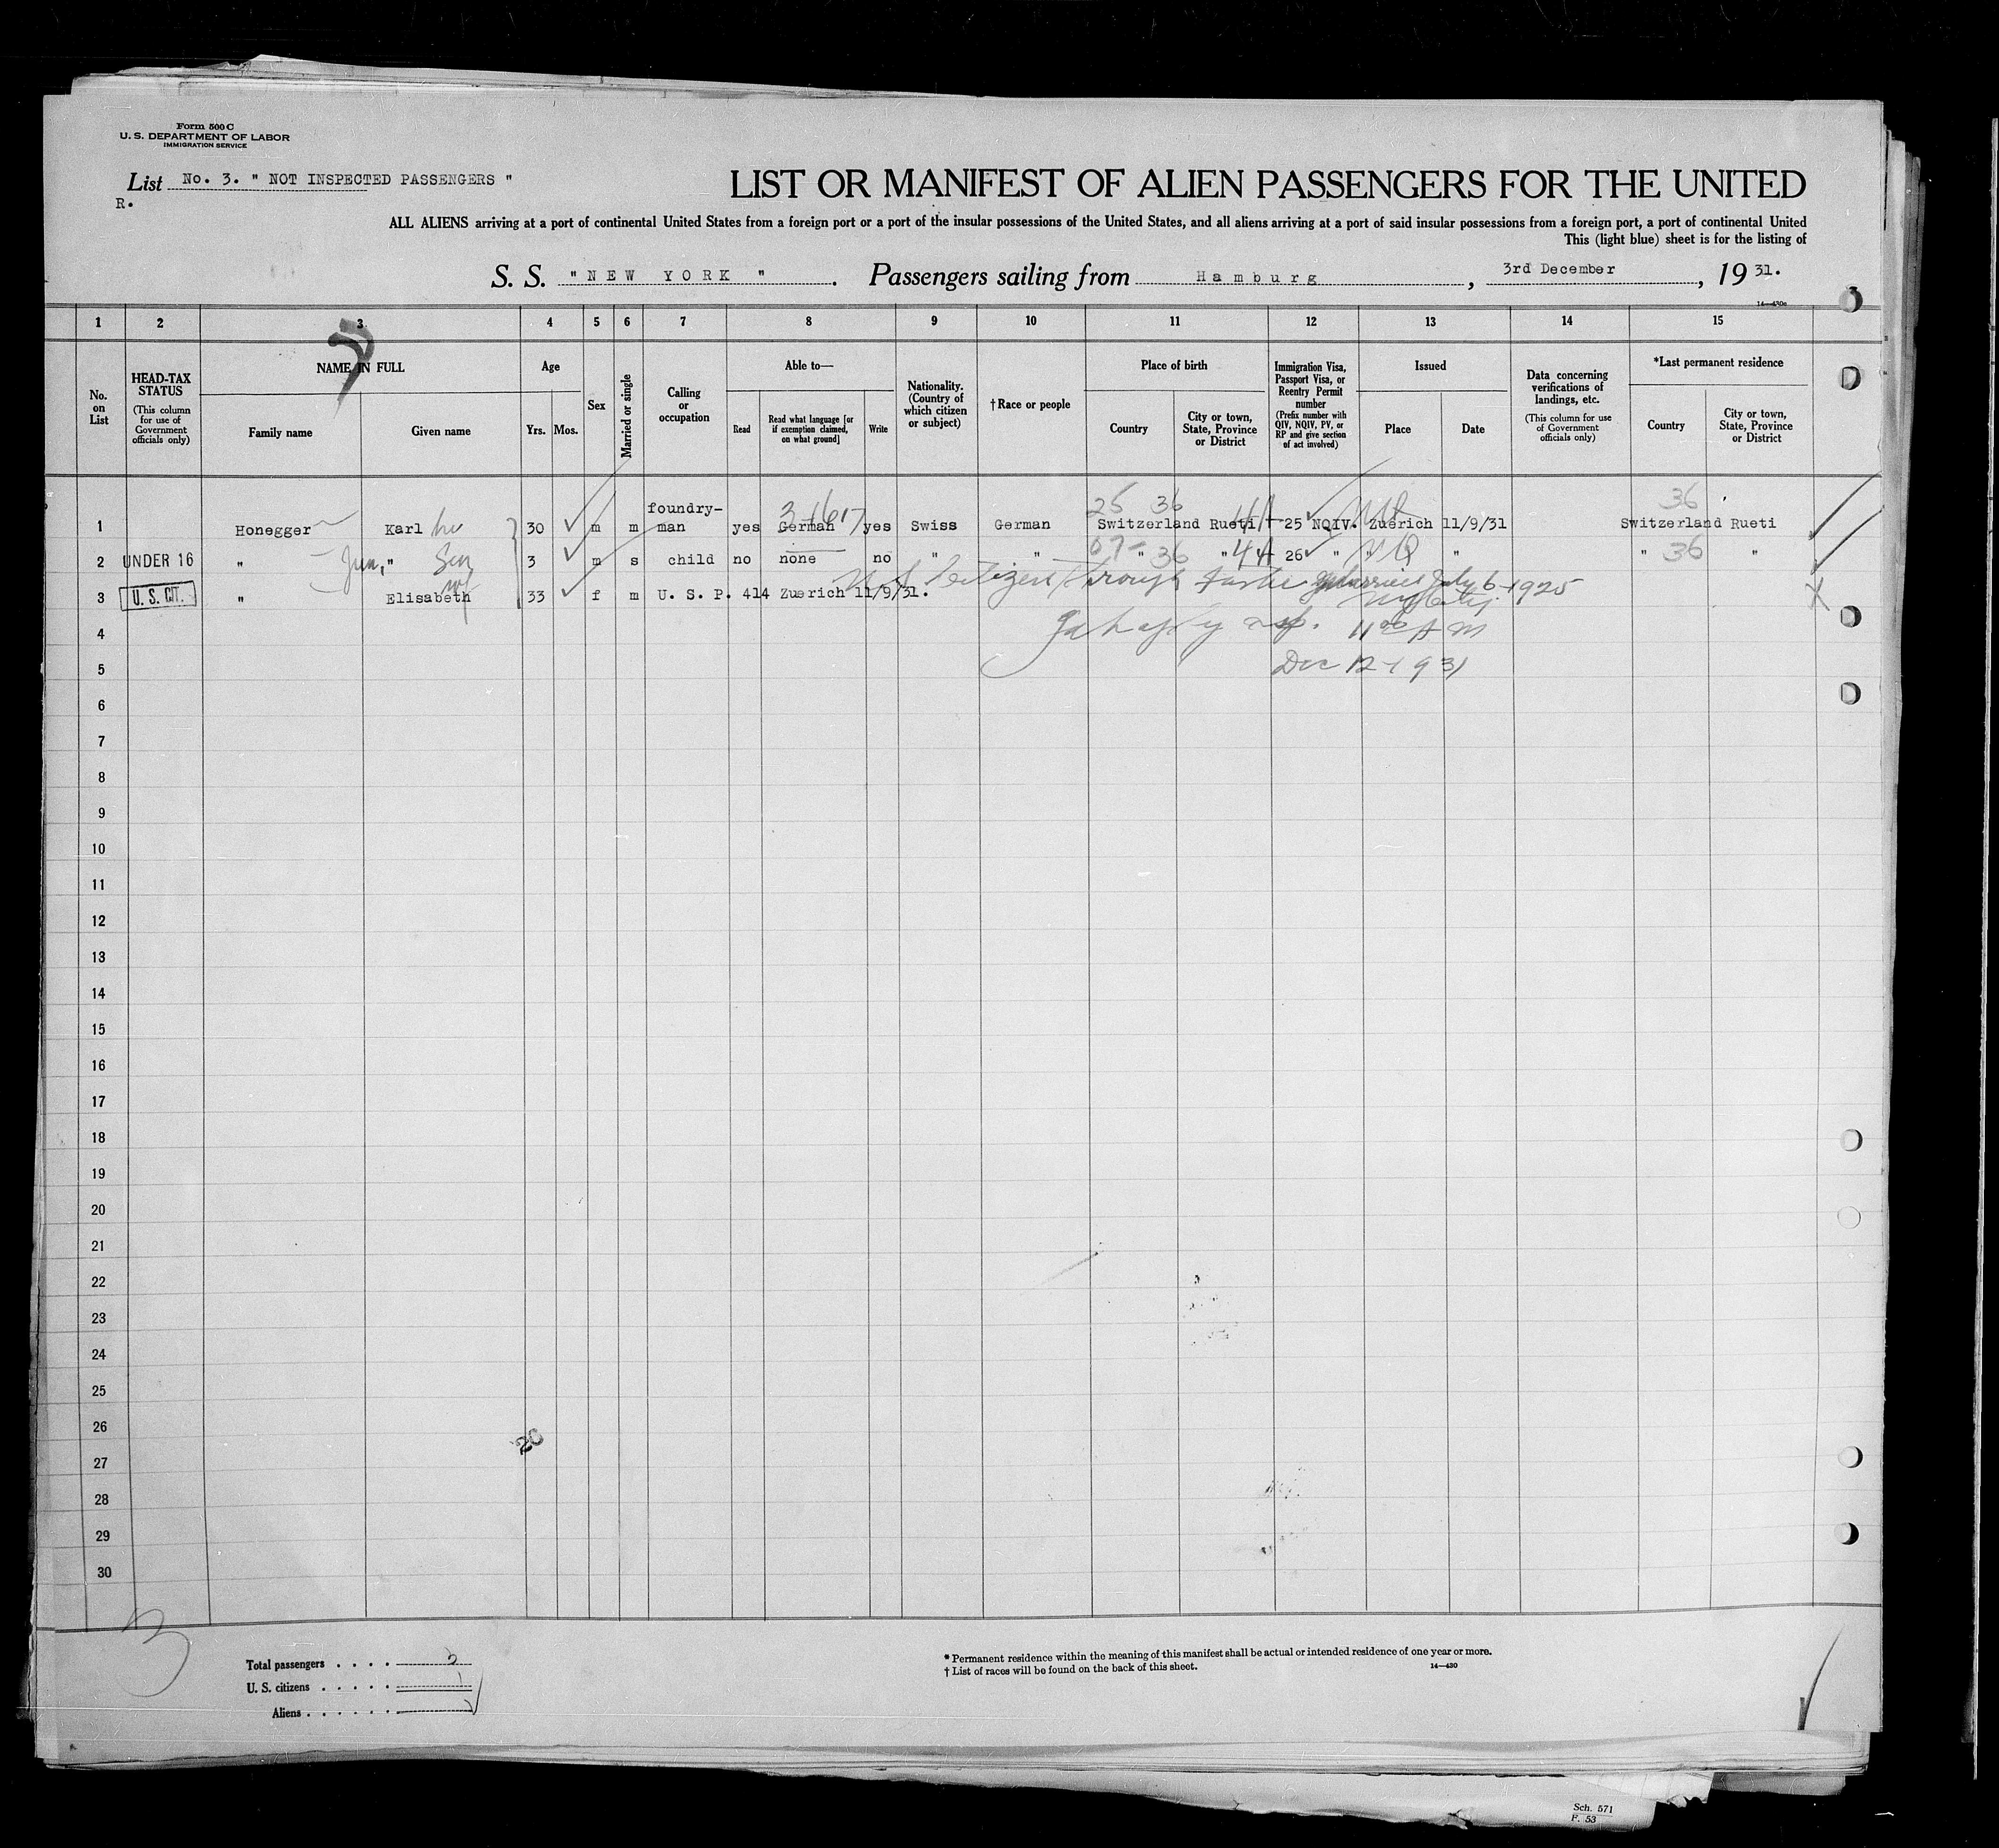 Form 500 C
U. S. DEPARTMENT OF LABOR
IMMIGRATION SERVICE
List No. 3. " NOT INSPECTED PASSENGERS "
R.
LIST OR MANIFEST OF ALIEN PASSENGERS FOR THE UNITED
ALL ALIENS arriving at a port of continental United States from a foreign port or a port of the insular possessions of the United States, and all aliens arriving at a port of said insular possessions from a foreign port, a port of continental United
This (light blue) sheet is for the listing of
S. S. " NEW YORK ". Passengers sailing from Hamburg, 3rd December, 19 31.
14—430a
3
1 2 3 4 5 6 7 8 9 10 11 12 13 14 15
No. on List
HEAD-TAX STATUS
(This column for use of Government officials only)
NAME IN FULL
Family name
Given name
Age
Yrs. Mos.
Sex
Married or single
Calling or occupation
Able to—
Read
Read what language [or if exemption claimed, on what ground]
Write
Nationality. (Country of which citizen or subject)
† Race or people
Place of birth
Country
City or town, State, Province or District
Immigration Visa, Passport Visa, or Reentry Permit number
(Prefix number with QIV, NQIV, PV, or RP and give section of act involved)
Issued
Place
Date
Data concerning verifications of landings, etc.
(This column for use of Government officials only)
*Last permanent residence
Country
City or town, State, Province or District
25 36 36
1 Honegger Karl 30 m m foundry-man yes German yes Swiss German Switzerland Rueti 25 NQIV. Zuerich 11/9/31 Switzerland Rueti
2 UNDER 16 " Jun, " Son 3 m s child no none no " " " 36 " 4A 26 " " " " 36 "
3 U. S. CIT. " Elisabeth 33 f m U. S. P. 414 Zuerich 11/9/31. U S Citizen through father married July 6-1925
4 11 00 A M
5 Dec 12-1931
6
7
8
9
10
11
12
13
14
15
16
17
18
19
20
21
22
23
24
25
26
20
27
28
29
30
3
Total passengers . . . . 3
U. S. citizens . . . . . 1
Aliens . . . . . . 2
* Permanent residence within the meaning of this manifest shall be actual or intended residence of one year or more.
† List of races will be found on the back of this sheet.
14—430
Sch. 571
F. 53